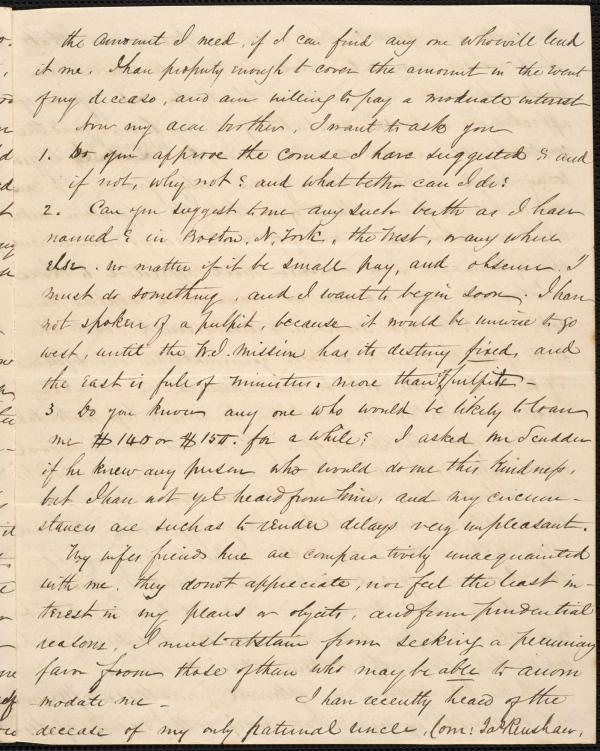 the amount I need, if I can find any one who will lend
it me. I have property enough to cover the amount in the event
of my decease, and am willing to pay a moderate interest
Now my dear brother, I want to ask you
1. Do you approve the course I have suggested? and
if not, why not? and what better can I do?
2. Can you suggest to me any such berth as I have
named? in Boston, N. York, the West, or any where
else. no matter if it be small pay, and obscure. I
must do something, and I want to begin soon. I have
not spoken of a pulpit, because it would be unwise to go
west, until the W.I. mission has its destiny fixed, and
the East is full of ministers. more than of pulpits -
3 Do you know any one who would be likely to loan
me $140 or $150. for a while? I asked Mr Scudder
if he knew any person who would do me this kindness,
but I have not yet heard from him, and my circum-
stances are such as to render delays very unpleasant.
My wifes friends here are comparatively unacquainted
with me. They do not appreciate, nor feel the least in-
terest in my plans or objects, and from prudential
reasons, I must abstain from seeking a pecuniary
favor from those of them who may be able to accom
modate me - I have recently heard of the
decease of my only paternal uncle, Com: Jas Renshaw,